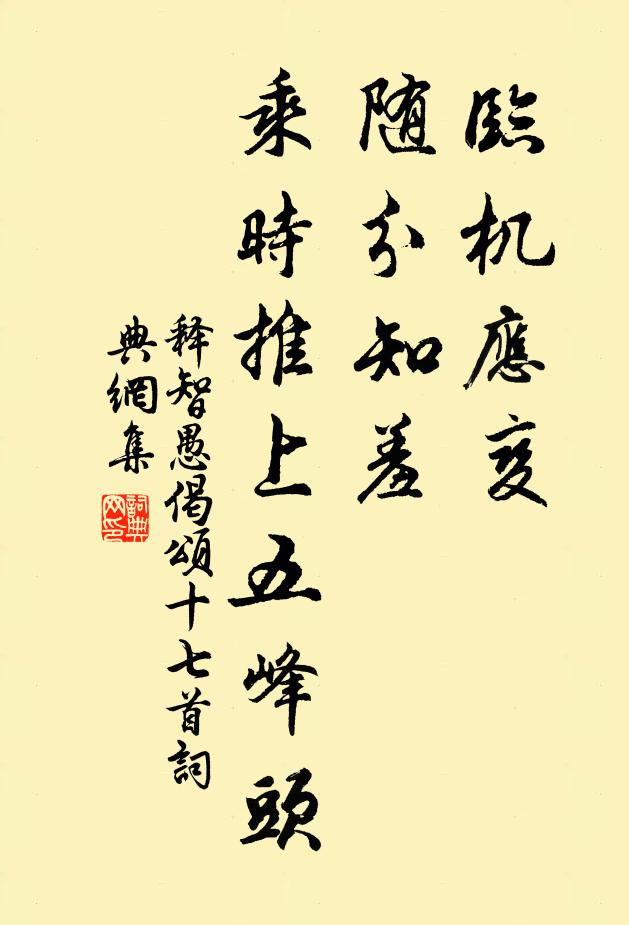 臨机應变
随分知羞
乘時推上五峰頭
释智愚偈頌十七首詞
典網集
詞典
网印